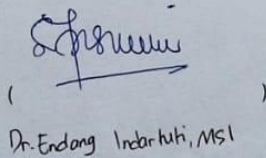 ( )
Dr. Endang Indartuti, MSI